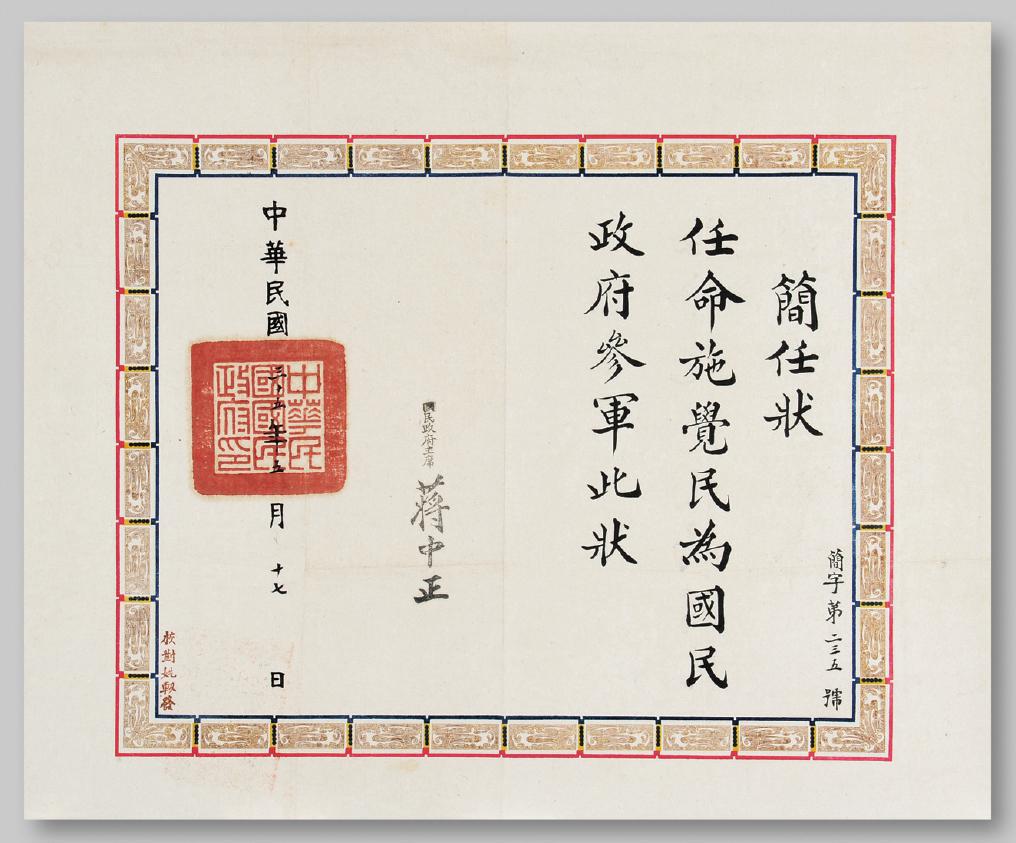 簡字第二三五號
簡任狀
任命施覺民為國民
政府參軍此狀
國民政府主席
蔣中正
中華民國三十五年五月十七日
中華民國國民政府印